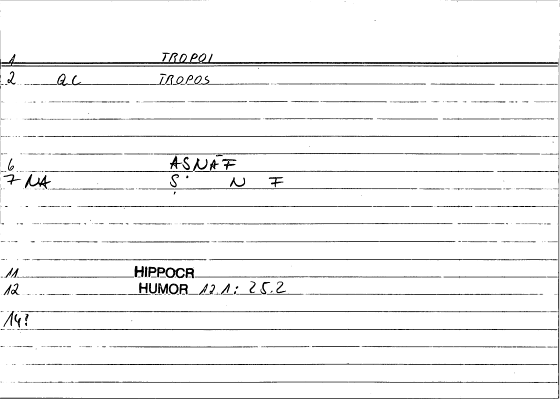 1 TROPOI
2 QC TROPOS
6 ASNĀF
7 NA Ṣ N F
11 HIPPOCR
12 HUMOR 12.1: 25.2
14?